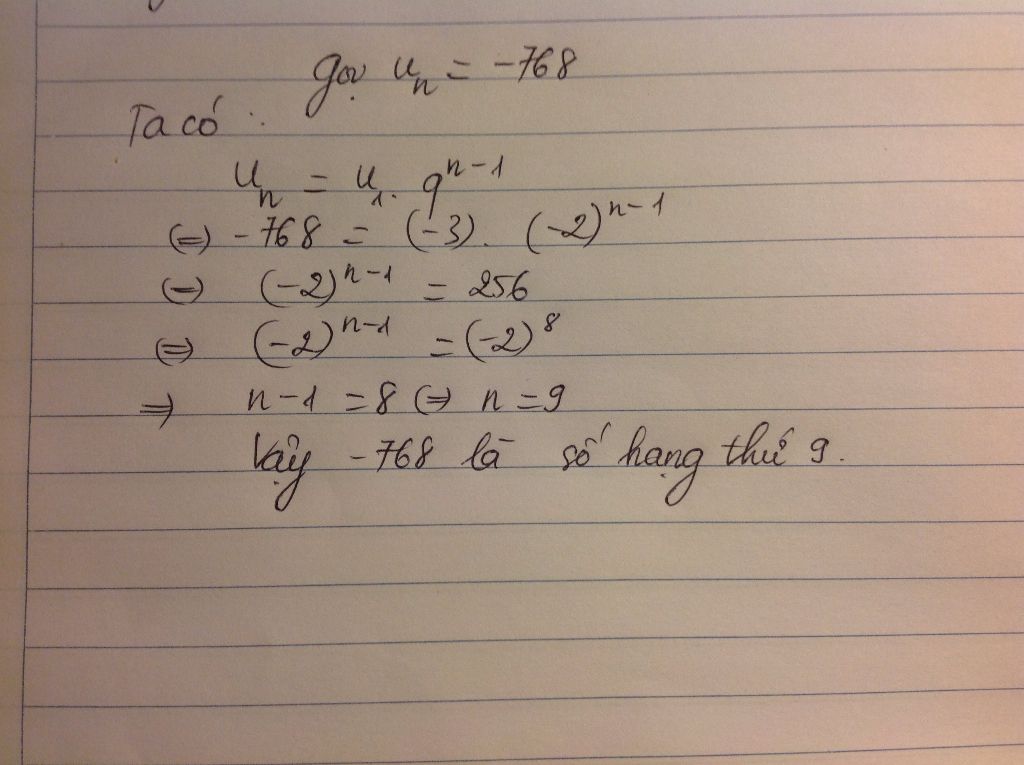 Gọi uₙ = -768
Ta có :
uₙ = u₁. qⁿ⁻¹
(=) -768 = (-3). (-2)ⁿ⁻¹
(=) (-2)ⁿ⁻¹ = 256
(=) (-2)ⁿ⁻¹ = (-2)⁸
=> n-1 = 8 (=) n = 9
Vậy -768 là số hạng thứ 9.